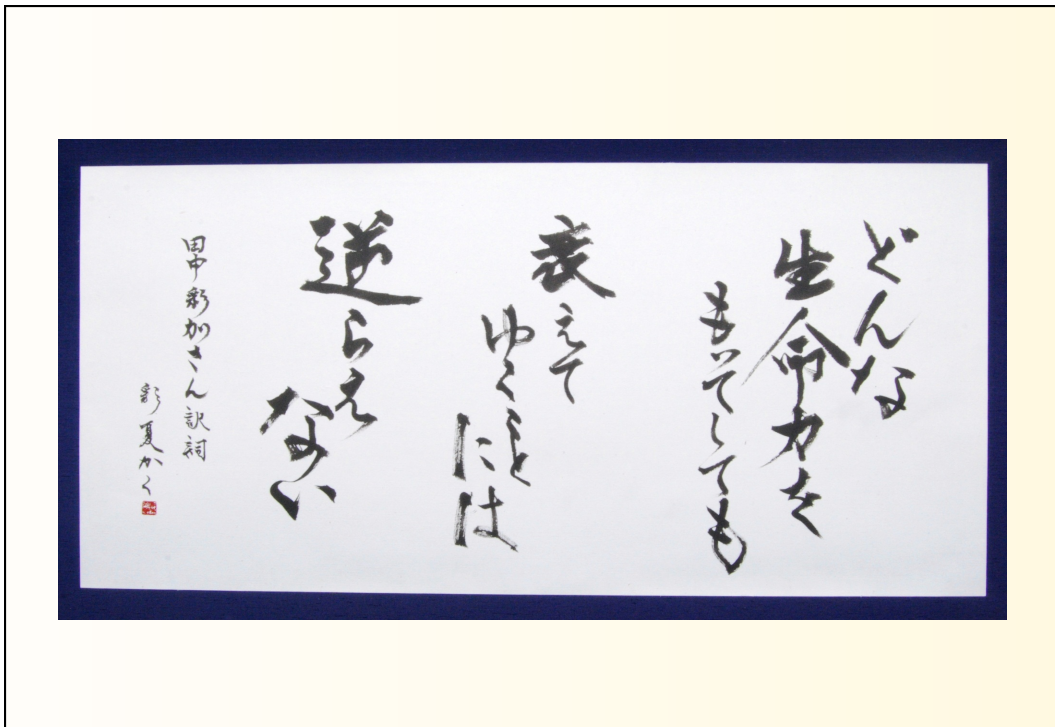 どんな
生命力を
もってしても
衰えて
ゆくことには
逆らえ
ない
田中彩加さん訳詞
彩夏かく